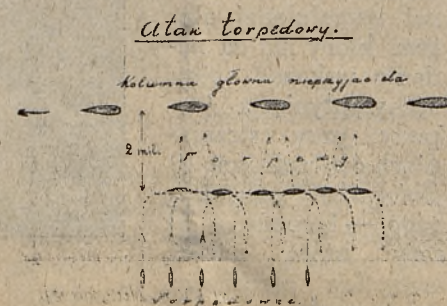 Atak torpedowy.
Kolumna główna nieprzyjaciela
2 mil.
Torpedy
A
Torpedowce.